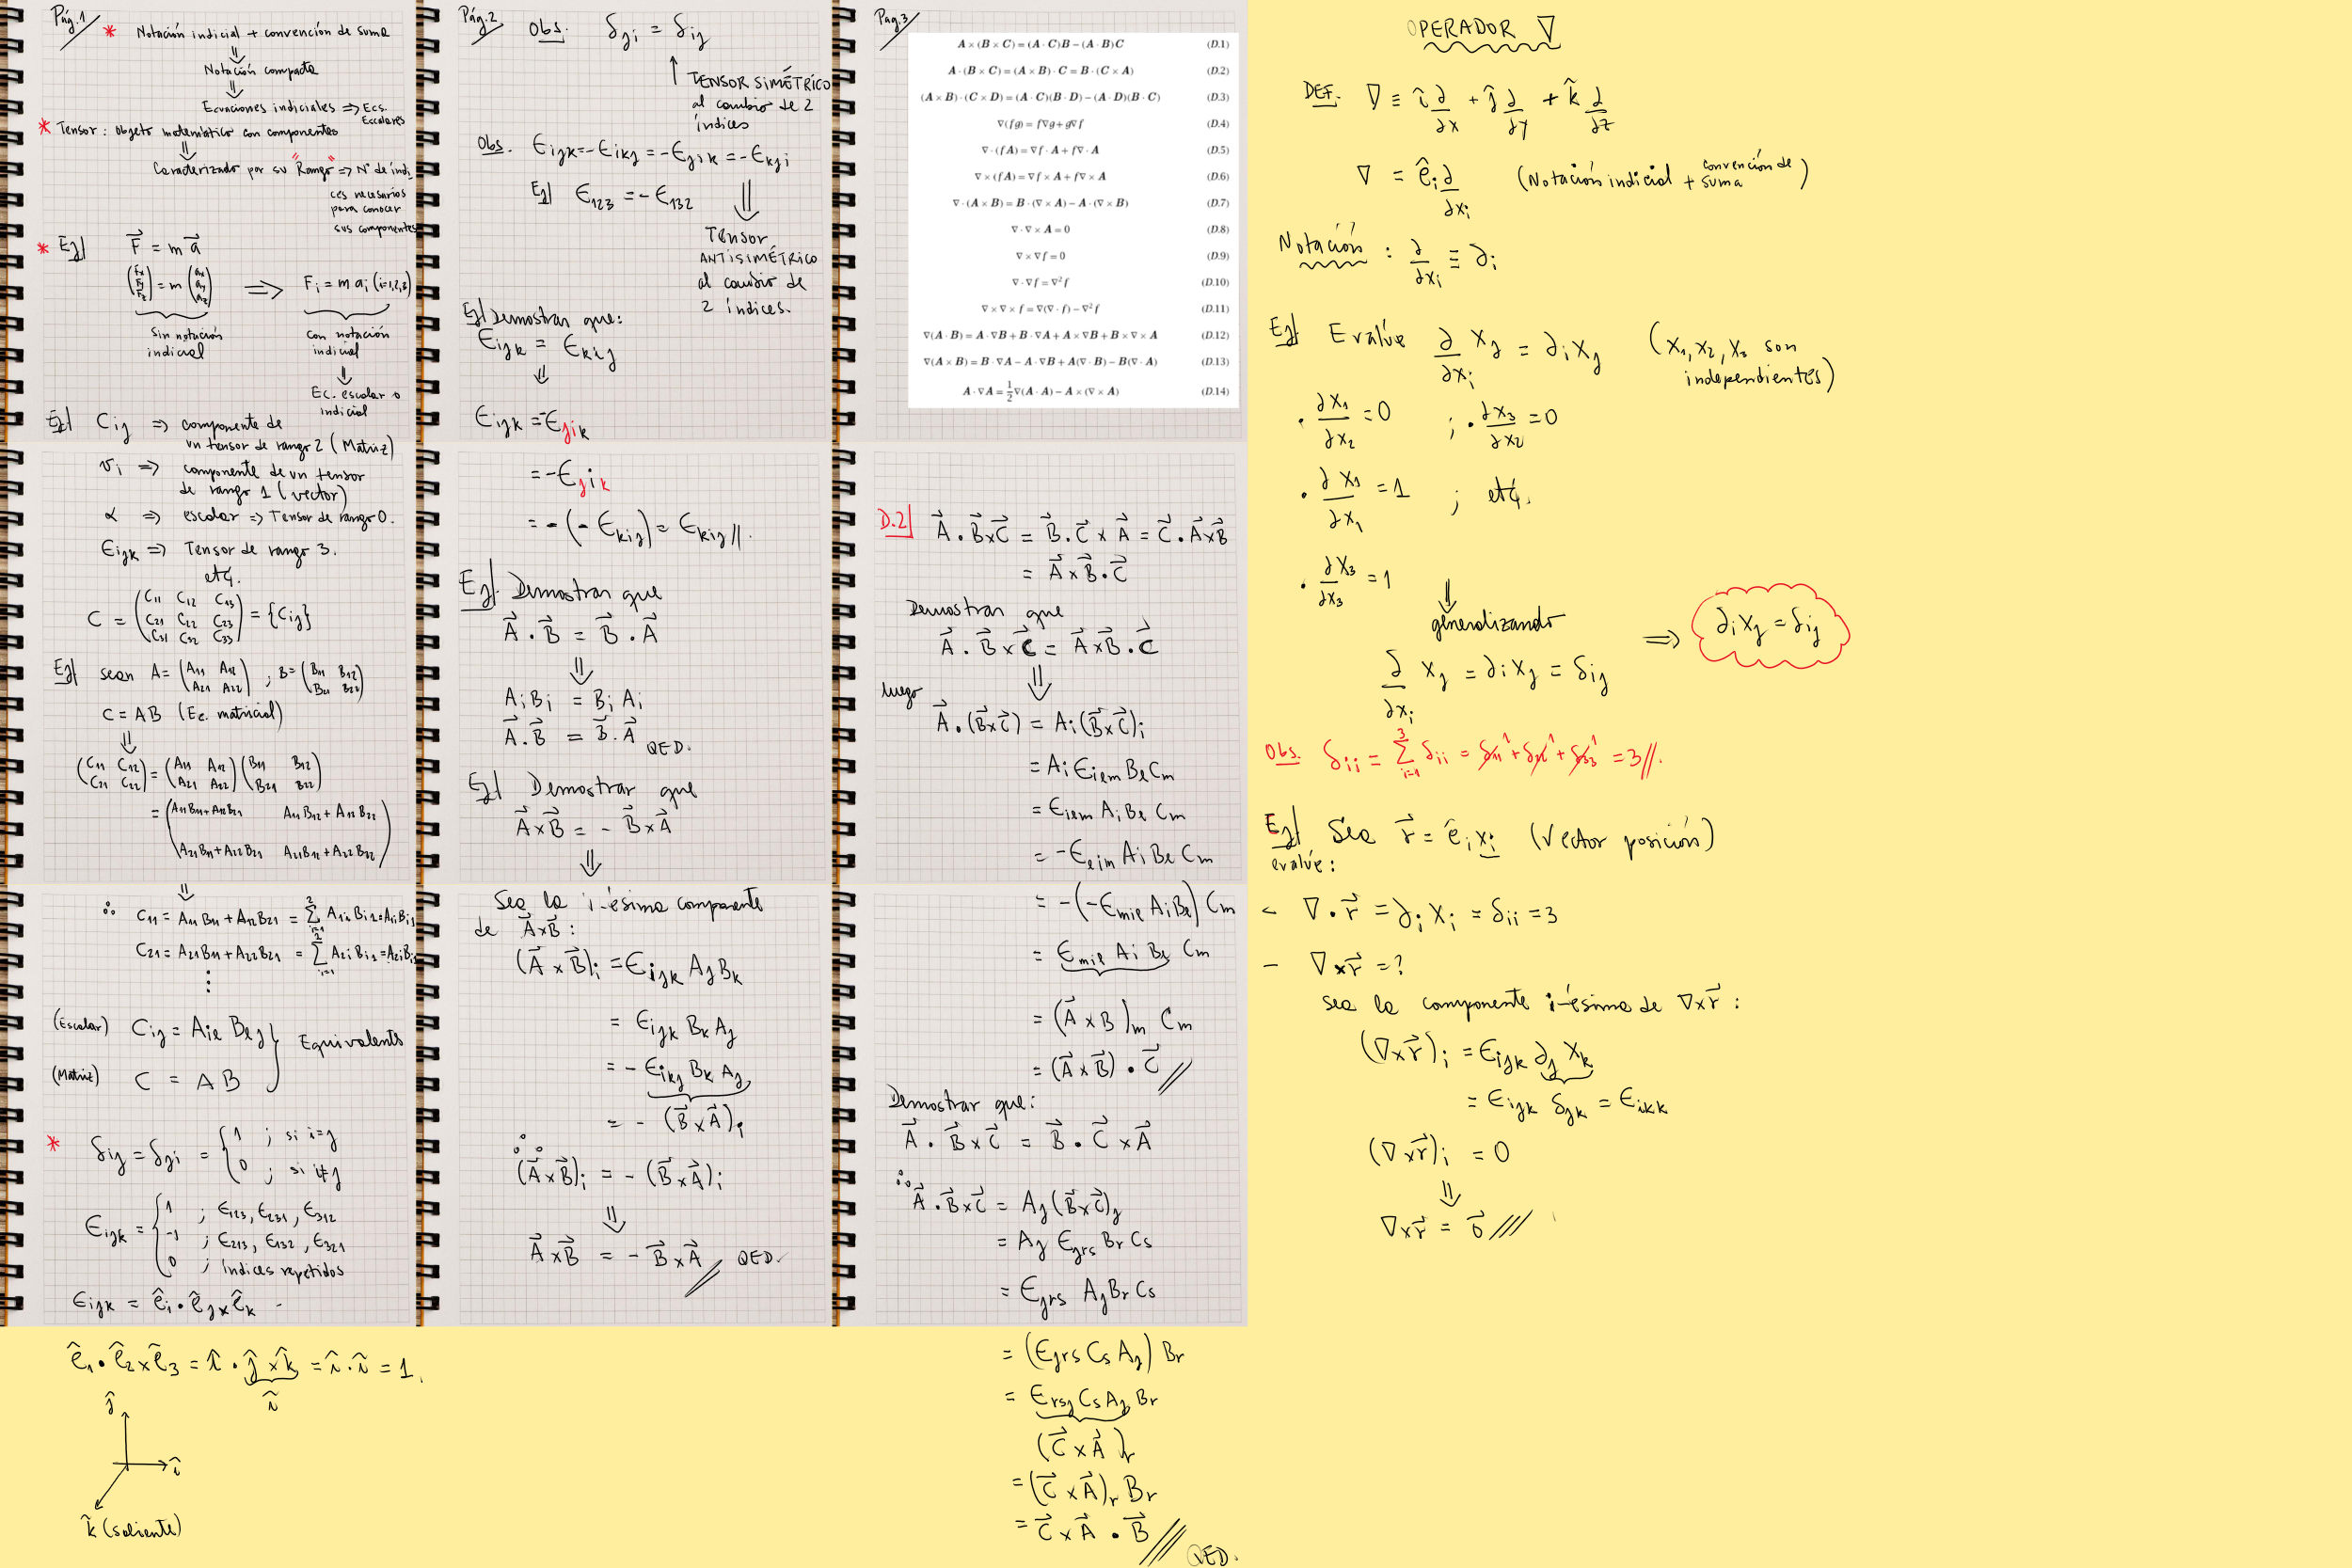 Pág.1
* Notación indicial + convención de suma
⇓
Notación compacta
⇓
Ecuaciones indiciales ⇒ Ecs. Escalares
* Tensor: objeto matemático con componentes
⇓
Caracterizado por su "Rango" ⇒ N° de índi
ces necesarios
para conocer
sus componentes
* Ej| F⃗ = m a⃗
(Fx Fy Fz) = m (ax ay az) ⇒ Fi = m ai (i=1,2,3)
Sin notación indicial
Con notación indicial
⇓
Ec. escalar o indicial
Ej| Cij ⇒ componente de
un tensor de rango 2 (Matriz)
vi ⇒ componente de un tensor
de rango 1 (vector)
α ⇒ escalar ⇒ Tensor de rango 0.
Єijk ⇒ Tensor de rango 3.
etc.
C = (C11 C12 C13 C21 C22 C23 C31 C32 C33) = {Cij}
Ej| sean A = (A11 A12 A21 A22) ; B = (B11 B12 B21 B22)
C = AB (Ec. matricial)
⇓
(C11 C12 C21 C22) = (A11 A12 A21 A22)(B11 B12 B21 B22)
= (A11B11+A12B21 A11B12+A12B22
A21B11+A22B21 A21B12+A22B22)
⇓
∴ C11 = A11B11 + A12B21 = Σ A1iBi1 = A1iBi1
C21 = A21B11 + A22B21 = Σ A2iBi1 = A2iBi
⋮
(Escalar) Cij = Aiℓ Bℓj
Equivalents
(Matriz) C = AB
* δij = δji = { 1 ; si i=j
0 ; si i≠j
Єijk = { 1 ; Є123, Є231, Є312
-1 ; Є213, Є132, Є321
0 ; índices repetidos
Єijk = êi • êj x êk
ê1 • ê2 x ê3 = î • ĵ x k̂ = î • î = 1.
î
ĵ
î
k̂ (saliente)
Pág.2
Obs. δji = δij
↑ TENSOR SIMÉTRICO
al cambio de 2
índices
Obs. Єijk = -Єikj = -Єjik = -Єkji
Ej| Є123 = -Є132
⇓
Tensor
ANTISIMÉTRICO
al cambio de
2 índices.
Ej| Demostrar que:
Єijk = Єkij
⇓
Єijk = -Єjik
= -Єjik
= -(-Єkij) = Єkij //.
Ej| Demostrar que
A⃗ • B⃗ = B⃗ • A⃗
⇓
AiBi = BiAi
A⃗ • B⃗ = B⃗ . A⃗ QED.
Ej| Demostrar que
A⃗ x B⃗ = - B⃗ x A⃗
⇓
Sea la i-ésima componente
de A⃗xB⃗ :
(A⃗ x B⃗)i = Єijk Aj Bk
= Єijk Bk Aj
= - Єikj Bk Aj
= - (B⃗ x A⃗)i
∴
(A⃗xB⃗)i = - (B⃗xA⃗)i
⇓
A⃗xB⃗ = - B⃗xA⃗ // QED.
Pag.3
A × (B × C) = (A · C)B − (A · B)C (D.1)
A · (B × C) = (A × B) · C = B · (C × A) (D.2)
(A × B) · (C × D) = (A · C)(B · D) − (A · D)(B · C) (D.3)
∇(fg) = f∇g + g∇f (D.4)
∇ · (fA) = ∇f · A + f∇ · A (D.5)
∇ × (fA) = ∇f × A + f∇ × A (D.6)
∇ · (A × B) = B · (∇ × A) − A · (∇ × B) (D.7)
∇ · ∇ × A = 0 (D.8)
∇ × ∇f = 0 (D.9)
∇ · ∇f = ∇²f (D.10)
∇ × ∇ × f = ∇(∇ · f) − ∇²f (D.11)
∇(A · B) = A · ∇B + B · ∇A + A × ∇B + B × ∇ × A (D.12)
∇(A × B) = B · ∇A − A · ∇B + A(∇ · B) − B(∇ · A) (D.13)
A · ∇A = 1/2 ∇(A · A) − A × (∇ × A) (D.14)
D.2| A⃗ . B⃗xC⃗ = B⃗ . C⃗ x A⃗ = C⃗ . A⃗xB⃗
= A⃗xB⃗ . C⃗
Demostrar que
A⃗ . B⃗xC⃗ = A⃗xB⃗ . C⃗
⇓
luego
A⃗ . (B⃗xC⃗) = Ai (B⃗xC⃗)i
= Ai Єiℓm Bℓ Cm
= Єiℓm Ai Bℓ Cm
= -Єℓim Ai Bℓ Cm
= -(-Єmiℓ Ai Bℓ) Cm
= Єmiℓ Ai Bℓ Cm
= (A⃗ x B)m Cm
= (A⃗ x B⃗) • C⃗ //
Demostrar que:
A⃗ . B⃗xC⃗ = B⃗ . C⃗ x A⃗
∴ A⃗ . B⃗xC⃗ = Aj (B⃗xC⃗)j
= Aj Єjrs Br Cs
= Єjrs Aj Br Cs
= (Єjrs Cs Aj) Br
= Єrsj Cs Aj Br
(C⃗ x A⃗)r
= (C⃗ x A⃗)r Br
= C⃗ x A⃗ • B⃗ /// QED.
OPERADOR ∇
DEF. ∇ ≡ î ∂/∂x + ĵ ∂/∂y + k̂ ∂/∂z
∇ = êi ∂/∂xi (Notación indicial + convención de suma)
Notación : ∂/∂xi ≡ ∂i
Ej| Evalúe ∂/∂xi xj = ∂i xj (x1, x2, x3 son
independientes)
• ∂x1/∂x2 = 0 ; • ∂x3/∂x2 = 0
• ∂x1/∂x1 = 1 ; etc.
• ∂x3/∂x3 = 1
⇓
generalizando
∂/∂xi xj = ∂i xj = δij
⇒ ∂i xj = δij
Obs. δii = Σ δii = δ11 + δ22 + δ33 = 3//.
Ej| Sea r⃗ = êi xi (Vector posición)
evalúe:
- ∇ • r⃗ = ∂i xi = δii = 3
- ∇xr⃗ = ?
sea la componente i-ésima de ∇xr⃗ :
(∇xr⃗)i = Єijk ∂j xk
= Єijk δjk = Єikk
(∇xr⃗)i = 0
⇓
∇xr⃗ = 0⃗ ///